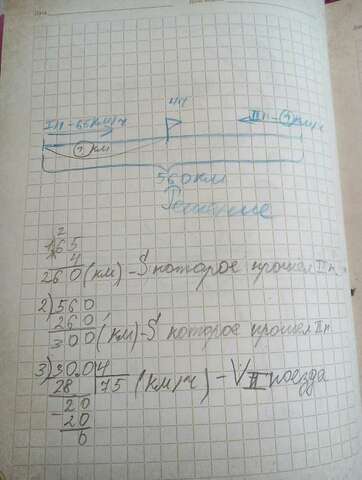 4ч
Iп-65км/ч
IIп-?км/ч
? км
560км
Решение
2
1) 65
× 4
260 (км)-S которое прошел Iп
2) 560
260
300 (км)-S которое прошел IIп
3) 300 4
28 75 (км/ч) - V II поезда
20
20
0